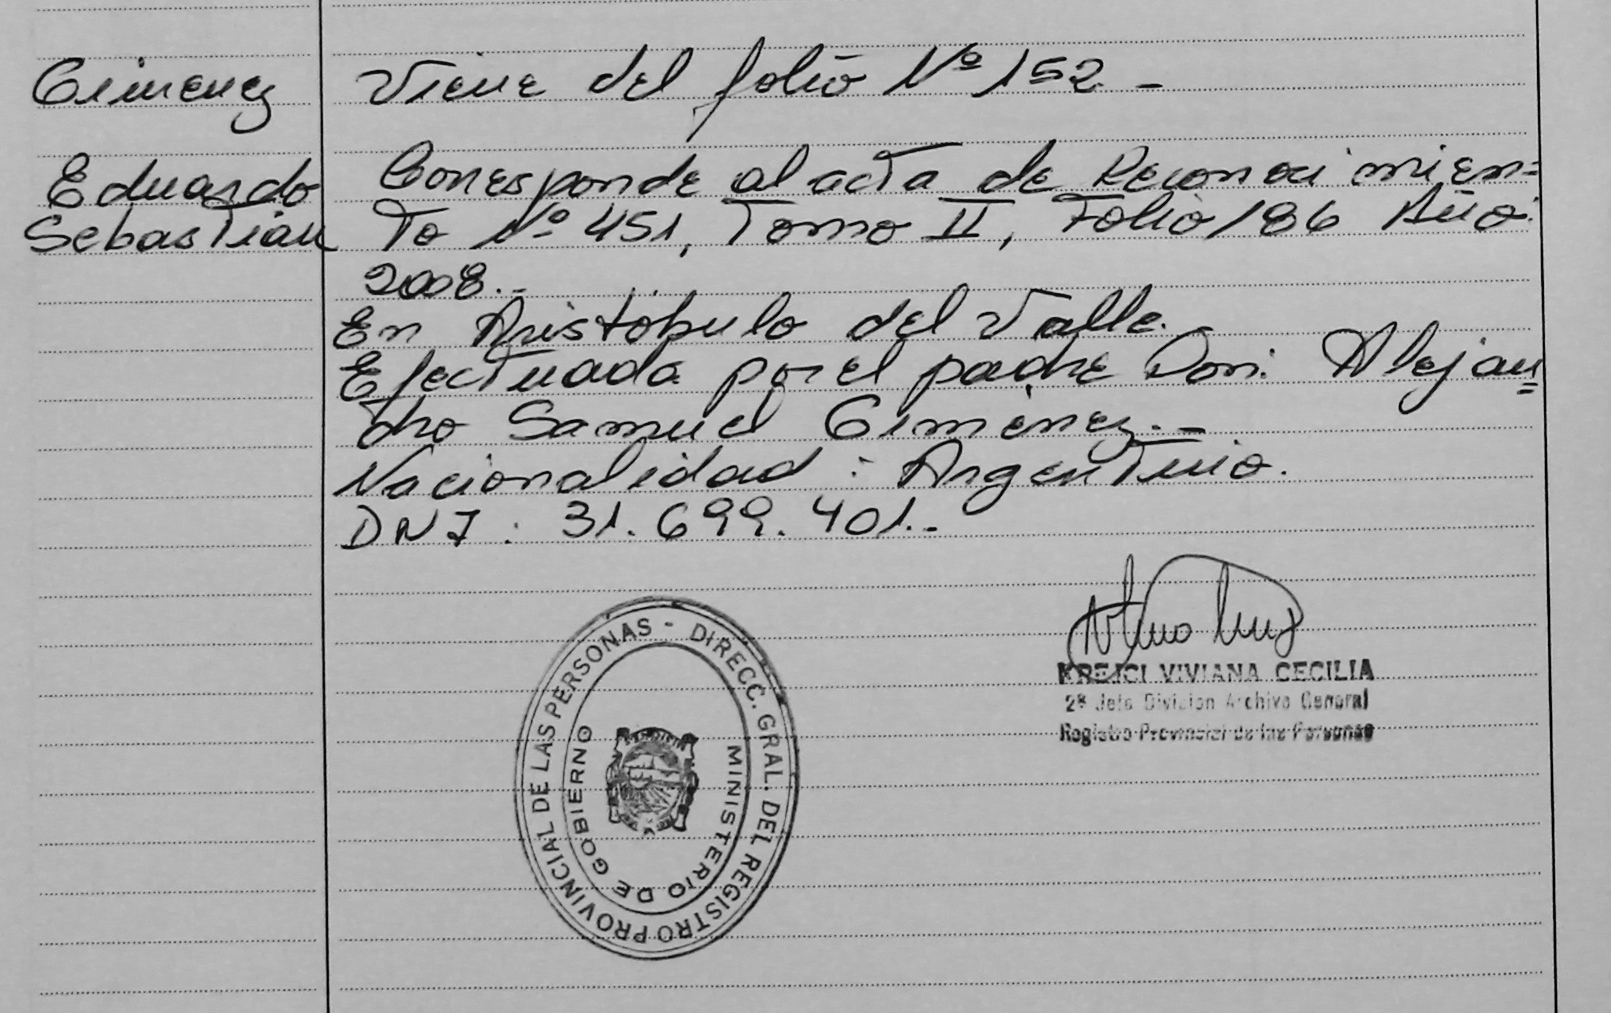 Gimenez
Eduardo
Sebastian
Viene del folio Nº 152.-
Corresponde al acta de Reconocimien=
to Nº 451, Tomo II, Folio 186 Año:
2008.-
En Aristóbulo del Valle.-
Efectuada por el padre Don: Alejan=
dro Samuel Gimenez.-
Nacionalidad: Argentino.
DNI: 31.699.401.-
DIRECC. GRAL. DEL REGISTRO PROVINCIAL DE LAS PERSONAS -
MINISTERIO DE GOBIERNO
KREJCI VIVIANA CECILIA
2ª Jefe Division Archivo General
Registro Provincial de las Personas